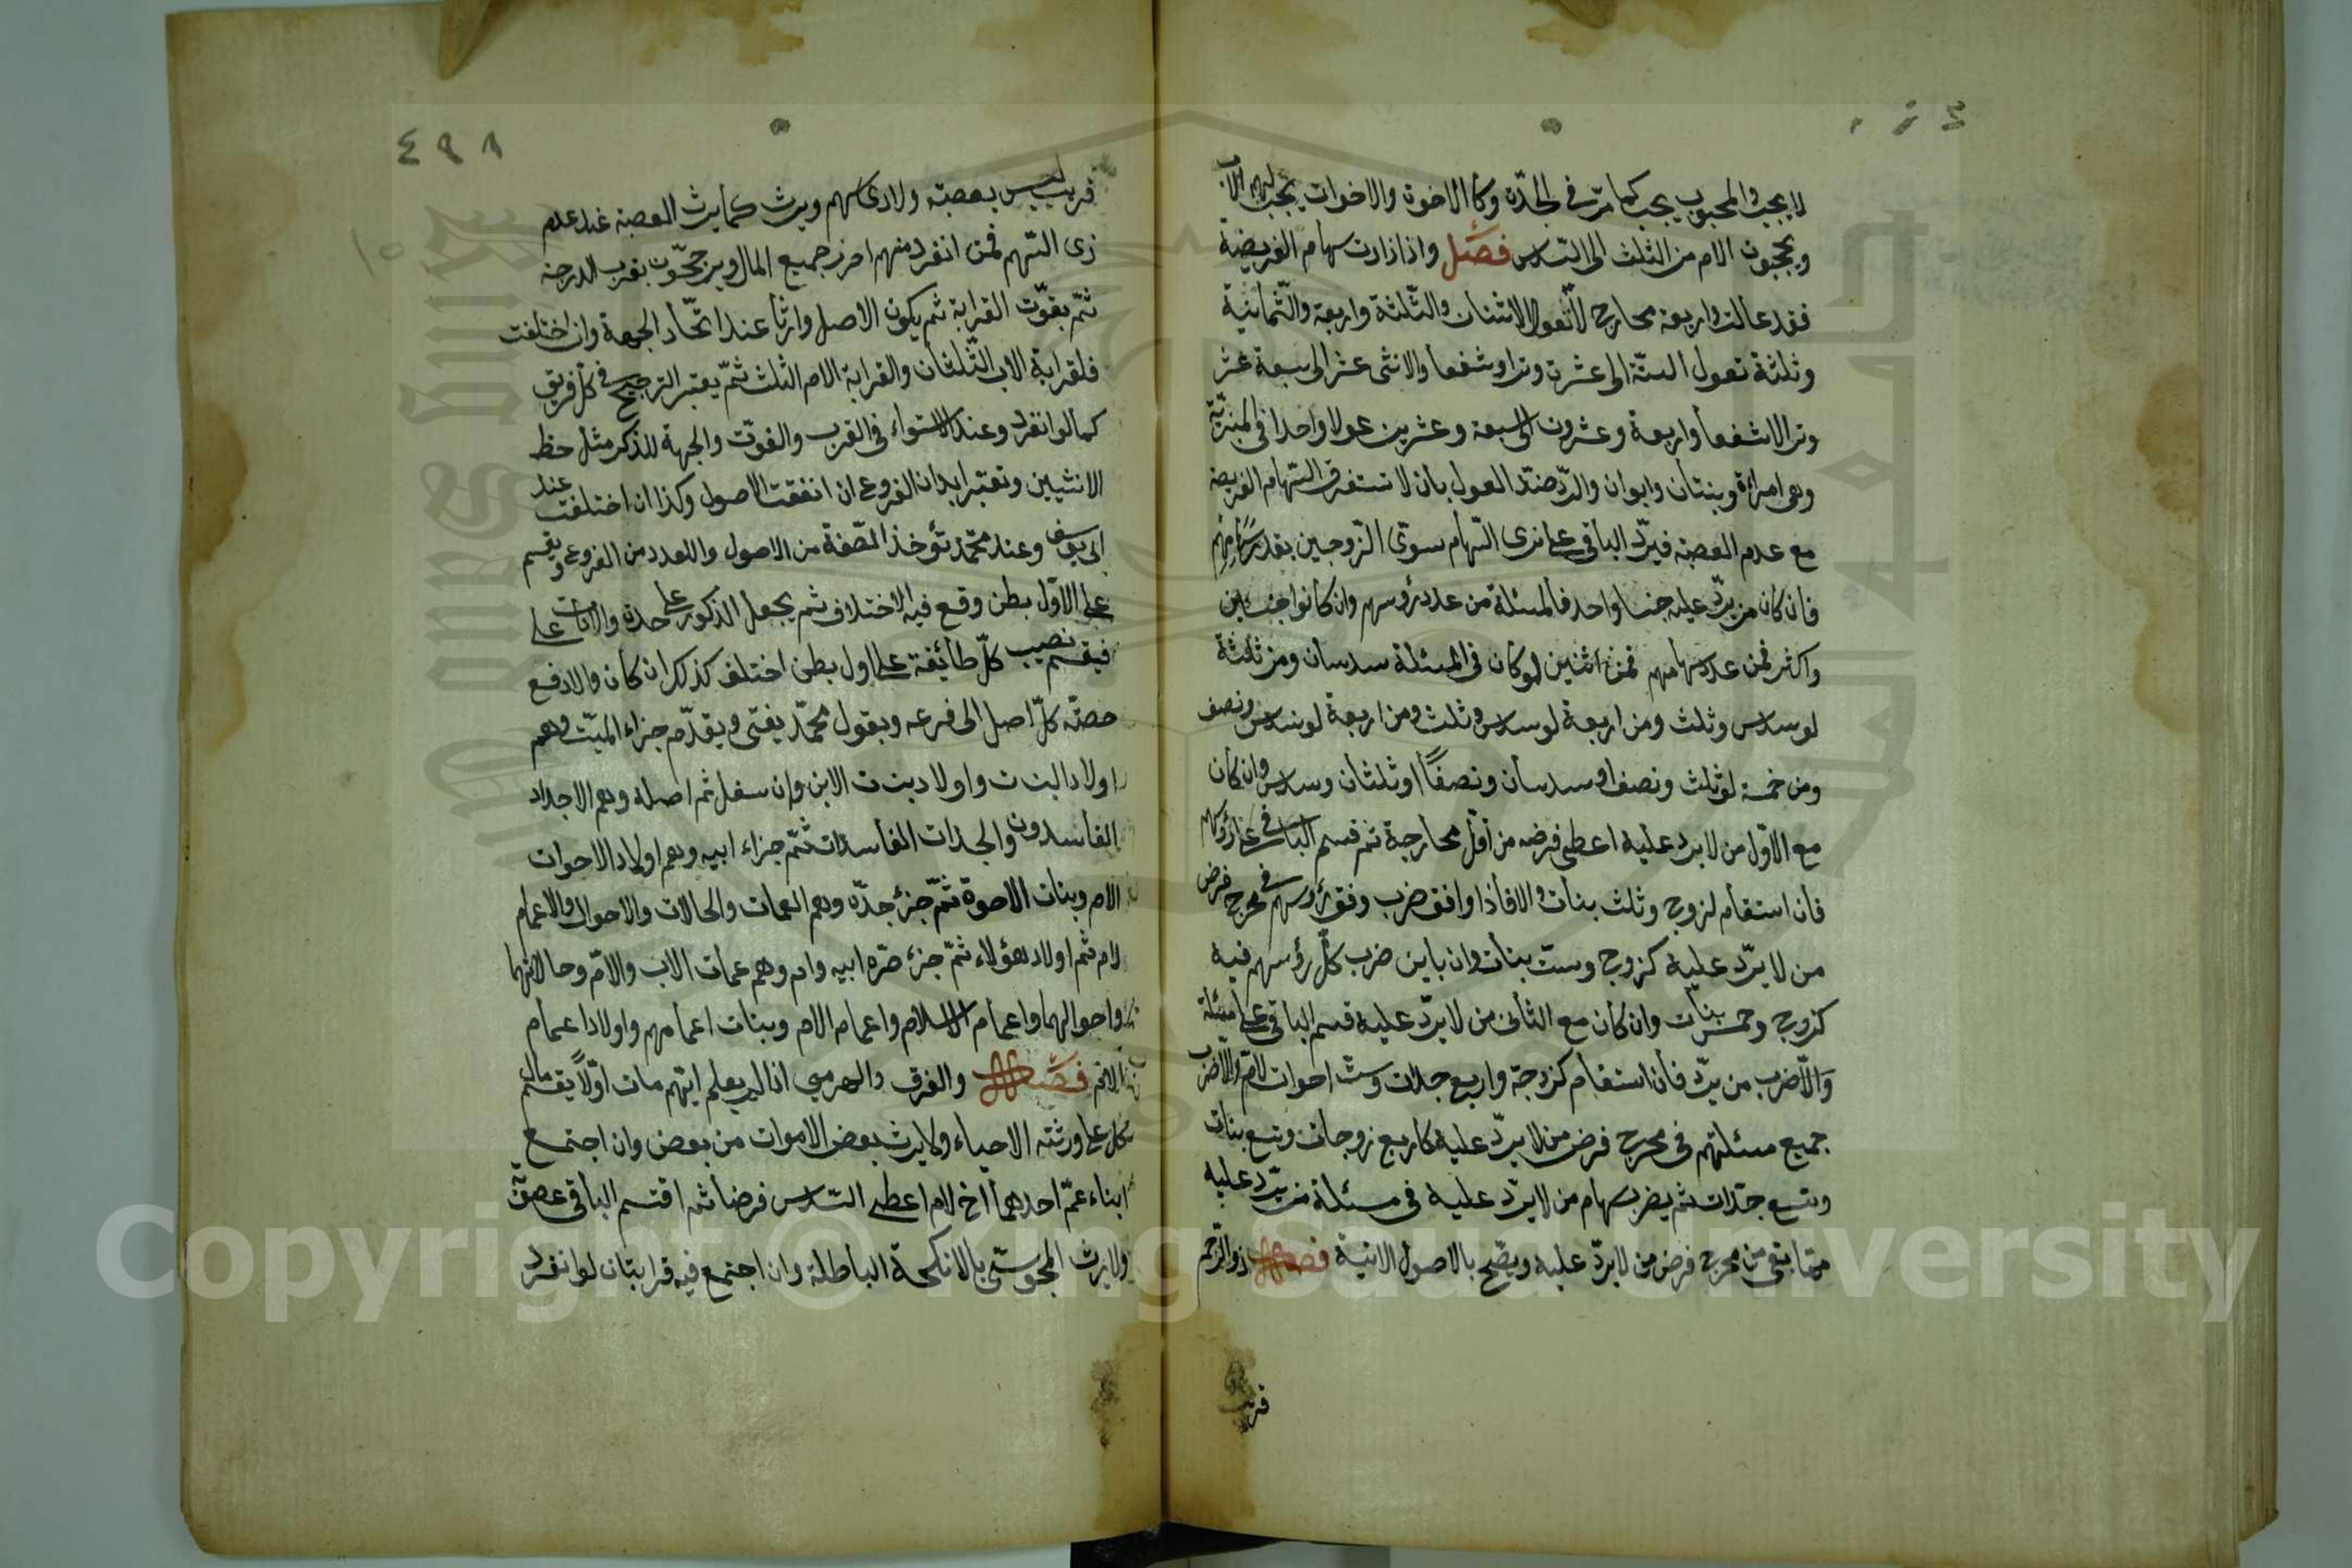 لا يحجب والمحجوب يحجب كما مرّ في الجدّة وكالاخوة والاخوات يحجبهم الاب
ويحجبون الام من الثلث الى السّدس فصل واذا زادت سهام الفريضة
فقد عالت واربعة مخارج لا تعول الاثنان والثلثة واربعة والثمانية
وثلثة تعول الستّة الى عشرة وترا وشفعا والاثنى عشر الى سبعة عشر
وترا لا شفعا واربعة وعشرون الى سبعة وعشرين عولا واحدا في المنبريّة
وهي امرأة وبنتان وابوان والردّ ضدّ العول بان لا تستغرق السّهام الفريضة
مع عدم العصبة فيردّ الباقى على ذى السّهام سوى الزّوجين بقدر سهامهم
فان كان من يردّ عليه جنسا واحد فالمسئلة من عدد رؤسهم وان كانوا جنسين
واكثر فمن عدد سهامهم فمن اثنين لو كان في المسئلة سدسان ومن ثلثة
لو سدس وثلث ومن اربعة لو سدس وثلث ومن اربعة لو سدس ونصف
ومن خمسة لو ثلث ونصف او سدسان ونصفا او ثلثان وسدس وان كان
مع الاوّل من لا يرد عليه اعطى فرضه من اقلّ مخارجه ثم قسم الباقي على رؤسهم
فان استقام لزوج وثلث بنات والا فاذا وافق ضرب وفق رؤسهم في مخرج فرض
من لا يردّ عليه كزوج وستّ بنات وان باين ضرب كلّ رؤسهم فيه
كزوج وخمس بنات وان كان مع الثانى من لا يردّ عليه قسم الباقى على مسئلة
من يردّ فان استقام كزوجة واربع جدات وستّ اخوات لامّ والّا ضرب
جميع مسئلتهم في مخرج فرض من لا يردّ عليه كاربع زوجات وتسع بنات
وتسع جدّات ثم يضرب سهام من لا يردّ عليه في مسئلة من يردّ عليه
ممّا بقى من مخرج فرض من لا يردّ عليه ويصّح بالاصول الاتية فصل ذو الرّحم
قريب
٤٩٨
قريب ليس بعصبة ولا ذى سهم ويرث كما يرث العصبة عند عدم
ذى السّهم فمن انفرد منهم احرز جميع المال ويرجحّون بقرب الدرجة
ثمّ بقوّت القرابة ثم يكون الاصل وارثا عند اتّحاد الجهة وان اختلفت
فلقرابة الاب الثّلثان والقرابة الام الثلث ثمّ يعتبر الترجيح في كلّ فريق
كما لو انفرد وعند الاستواء في القرب والقوّت والجهة للذكر مثل حظ
الانثيين وتعتبر ابدان الفروع ان اتفقت الاصول وكذا ان اختلفت عند
ابى يوسف وعند محمّد تؤخذ الصّفة من الاصول والعدد من الفروع ويقسم
على الاوّل بطن وقع فيه الاختلاف ثم يجعل الذكور على حدة والاناث على
فيقسم نصيب كلّ طائفة على اول بطن اختلف كذلك ان كان والا دفع
حصّة كلّ اصل الى فرعه وبقول محمّد يفتى ويقدّم جزاء الميّت وهم
اولاد البنت واولاد بنت الابن وان سفل ثم اصله وهم الاجداد
الفاسدون والجدات الفاسدات ثمّ جزاء ابيه وهم اولاد الاخوات
الام وبنات الاخوة ثمّ جزء جدّه وهم العمات والخالات والاخوال والاعمام
لام ثم اولاد هؤلاء ثمّ جزء جدّه ابيه وامه وهم عمات الاب والامّ وخالاتهما
واخوالهما واعمام الام واعمام الام وبنات اعمامهم واولاد اعمام
الام فصل والغرق والهرمى اذا لم يعلم ايّهم مات اوّلا يقسم مال
كل على ورثته الاحياء ولا يرث بعض الاموات من بعض وان اجتمع
ابناء عمّ احدهما اخ لام اعطى السّدس فرضا ثم اقتسم الباقى عصوبة
ولا يرث المجوسّى بالانكحة الباطلة وان اجتمع فيه قرابتان لو انفرد
Copyright © King Saud University